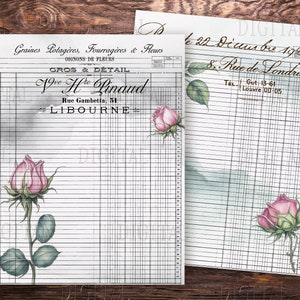 Graines Potagères, Fourragères & Fleurs
OIGNONS DE FLEURS
GROS & DÉTAIL
Vve Hte Pinaud
Rue Gambetta, 31
LIBOURNE
22 Décembre
8, Rue de Londres
Tél. Gut. 13-61
Louvre 00-05
DIGITAL